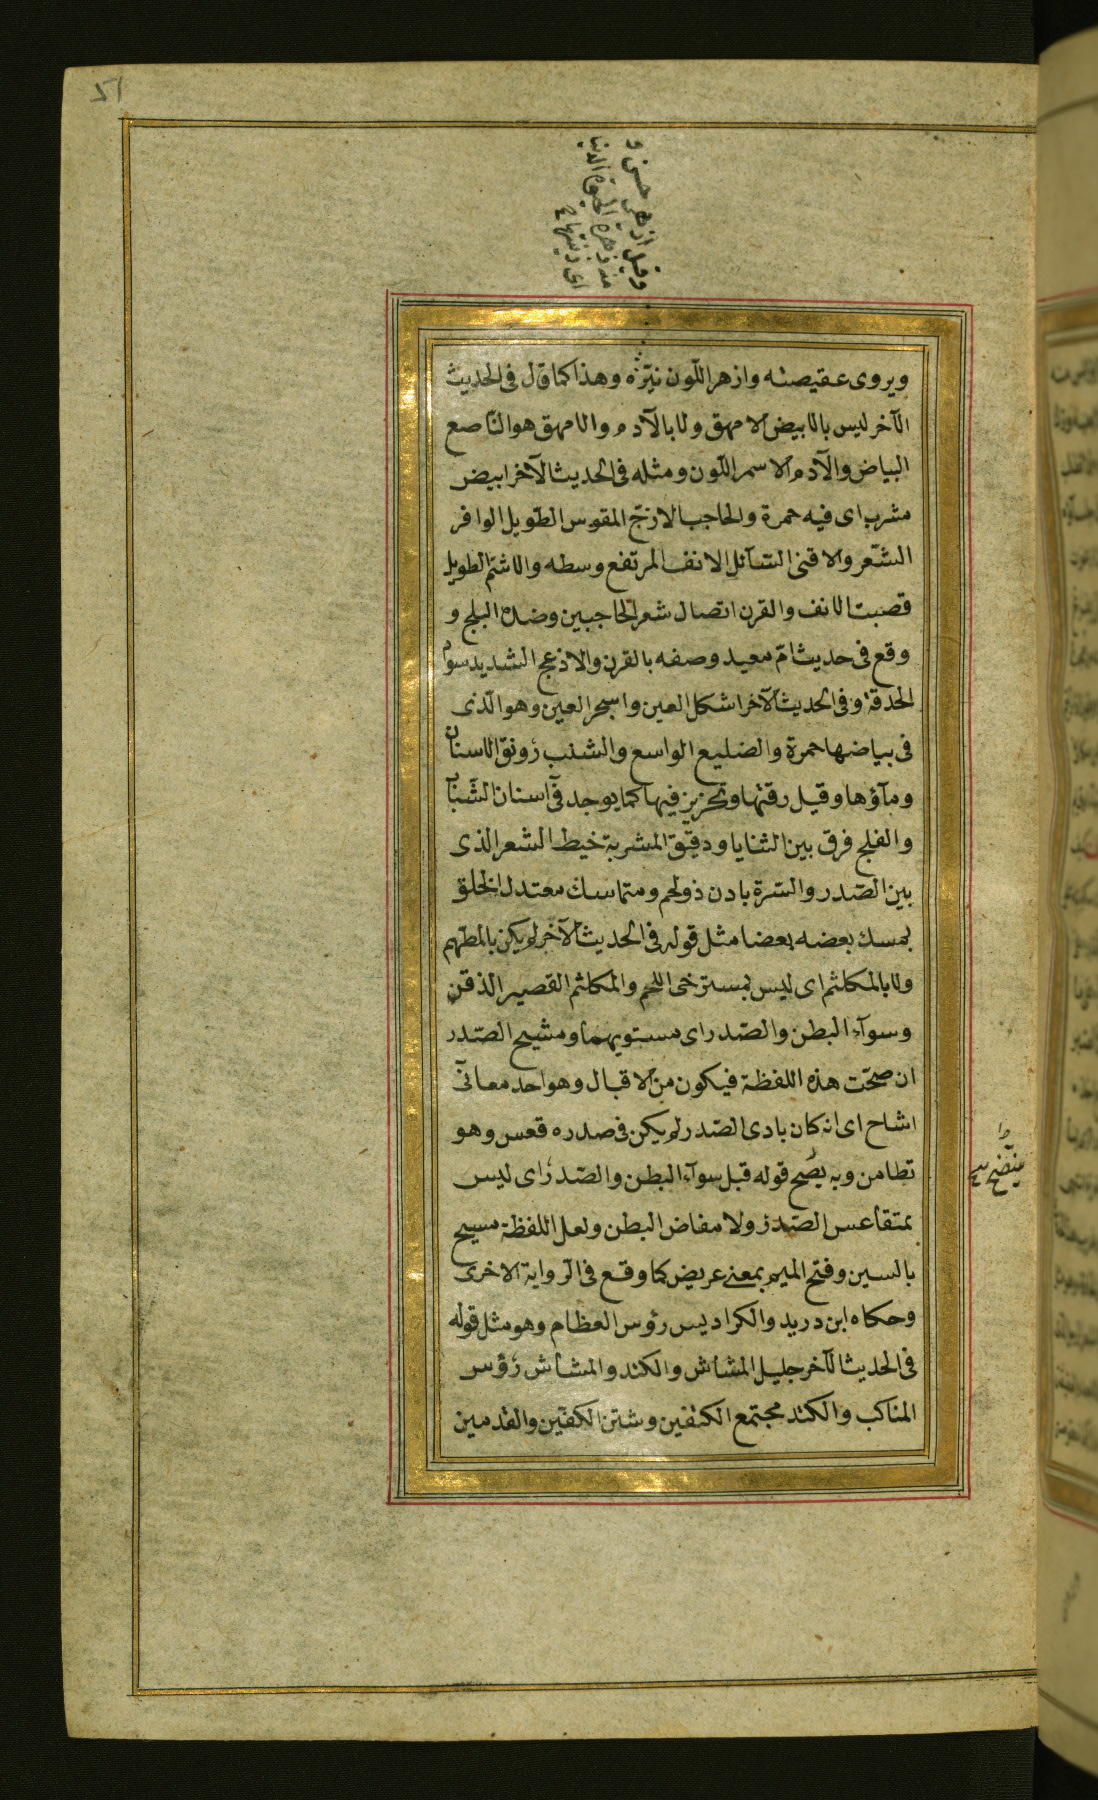 وقيل ازهر حسن و
منه زهرة الحيوة الدنيا
اى زينتها
ويروى عقيصته وازهر اللّون نيّره وهذا كما قال فى الحديث
الآخر ليس بالابيض الامهق ولا بالآدم والامهق هو الناصع
البياض والآدم الاسمر اللّون ومثله فى الحديث الآخر ابيض
مشرب اى فيه حمرة والحاجب الازجّ المقوس الطّويل الوافر
الشّعر والاقنى السّائل الانف المرتفع وسطه والاشمّ الطويل
قصبت الانف والقرن اتصال شعر الحاجبين وضده البلج و
وقع فى حديث امّ معبد وصفه بالقرن والادعج الشديد سواد
الحدقة وفى الحديث الآخر اشكل العين واسجر العين وهو الّذى
فى بياضها حمرة والضليع الواسع والشنب رونق الاسنان
ومآؤها وقيل رقتها وتحزيز فيها كما يوجد فى اسنان الشّباب
والفلج فرق بين الثنايا ودقيق المشربة خيط الشعر الذى
بين الصّدر والسّرة بادن ذو لحم ومتماسك معتدل الخلق
يمسك بعضه بعضا مثل قوله فى الحديث الآخر لم يكن بالمطهّم
ولا بالمكلثم اى ليس بمسترخى اللحم والمكلثم القصير الذقن
وسوآء البطن والصّدر اى مستويهما ومشيح الصّدر
ان صحّت هذه اللفظة فيكون من الاقبال وهو احد معانى
اشاح اى انه كان بادى الصّدر لم يكن فى صدره قعس وهو
تطامن وبه يصّح قوله قبل سوآء البطن والصّدر اى ليس
بمتقاعس الصّدر ولا مفاض البطن ولعل اللفظة مسيح
بالسين وفتح الميم بمعنى عريض كما وقع فى الرواية الاخرى
وحكاه ابن دريد والكراديس رؤس العظام وهو مثل قوله
فى الحديث الآخر جليل المشاش والكتد والمشاش رؤس
المناكب والكتد مجتمع الكتفين وشثن الكفّين والقدمين